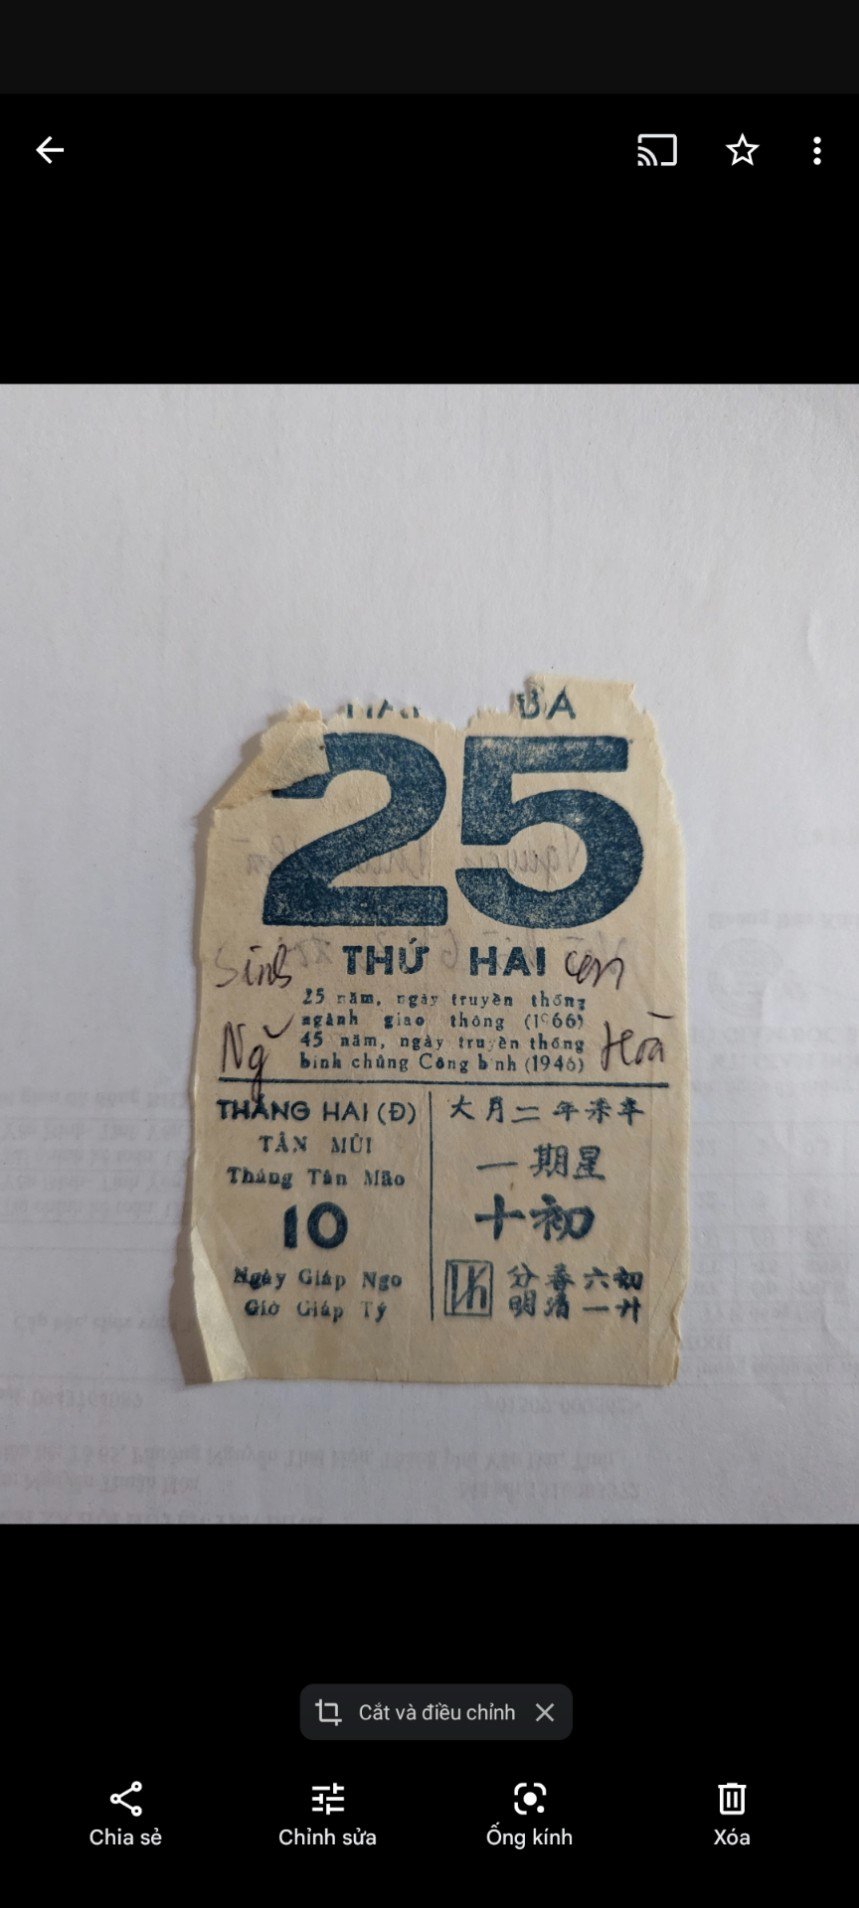 BA
25
THỨ HAI
Sinh con
25 năm, ngày truyền thống
ngành giao thông (1966)
45 năm, ngày truyền thống
binh chủng Công binh (1946)
Ng Hoà
THÁNG HAI (Đ)
TÂN MÙI
Tháng Tân Mão
10
Ngày Giáp Ngọ
Giờ Giáp Tý
大月二年未辛
一期星
十初
分春六初
明清一廿
Cắt và điều chỉnh
Chia sẻ
Chỉnh sửa
Ống kính
Xóa